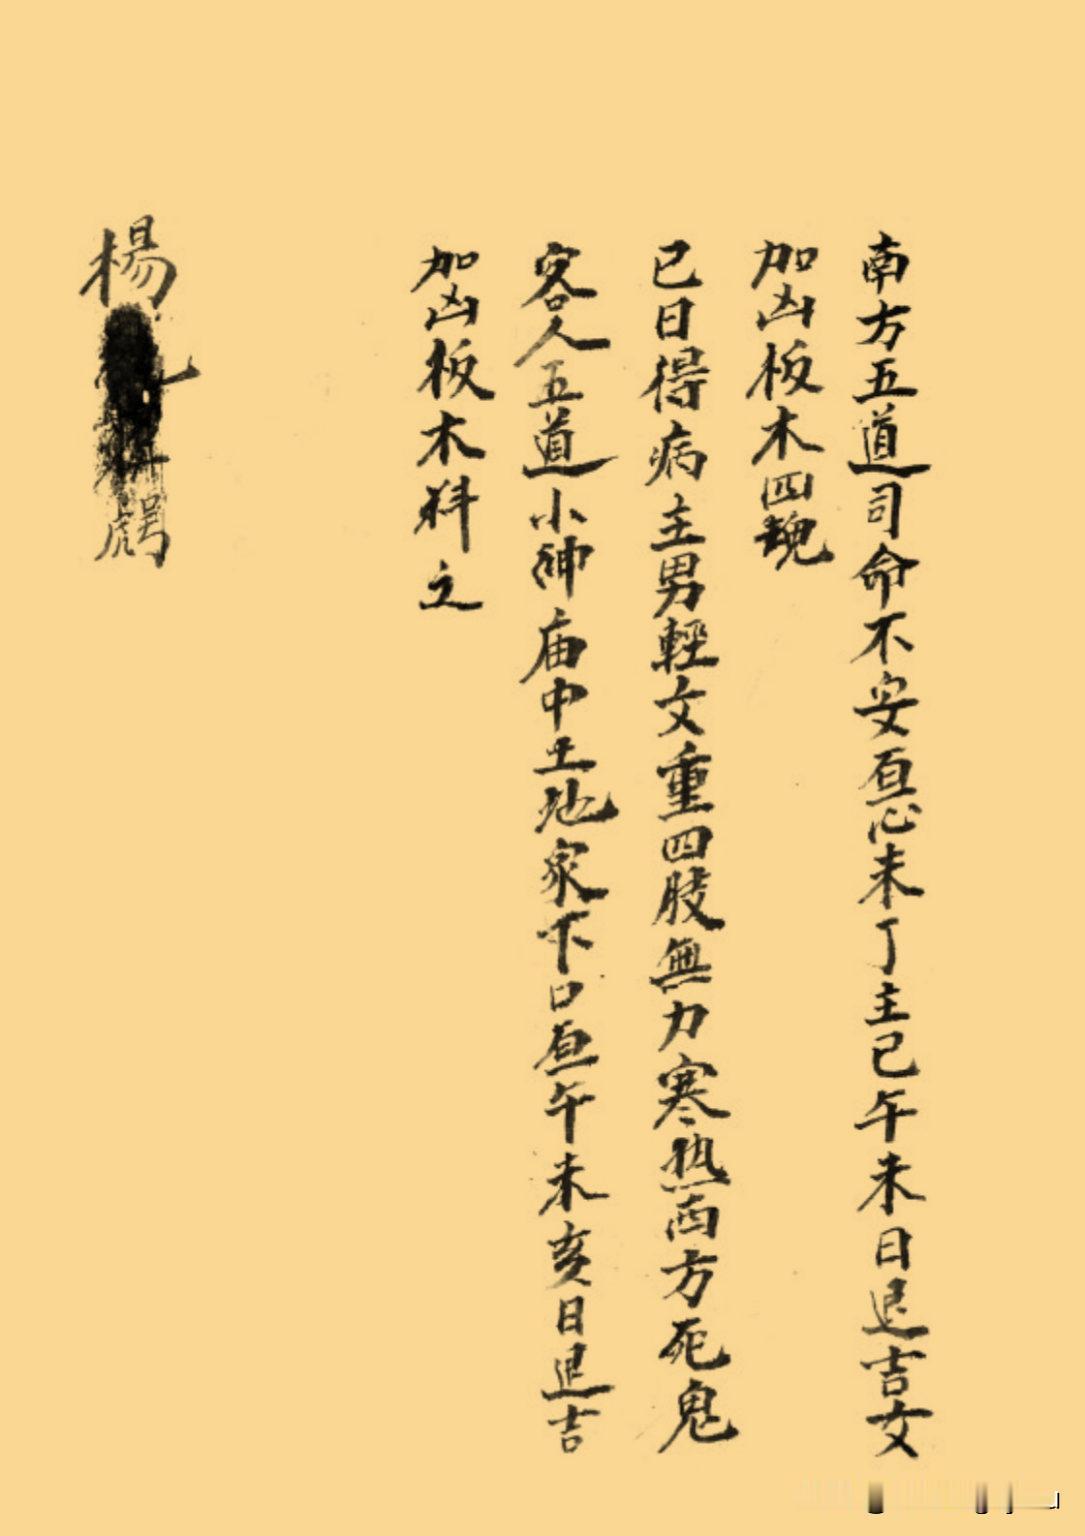 南方五道司命不安亙心未了主巳午未日退吉女
加凶板木四魂
巳日得病主男輕文重四肢無力寒热西方死鬼
客人五道小神庙中土地家下口亙午未亥日退吉
加凶板木科之
楊